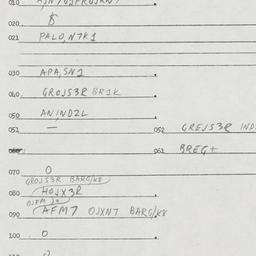 010
020 8
021 PALO,N7K1
030 APA,SN1
040 GROJS3R BR1K
050 AN,IND2L
051 — 052 GREJS3R IND
061 BREG+
070 O
GROJS3R BARG/K8
080 HOJX3R
090 AFM7 OJXN7 BARG/K8
100 O